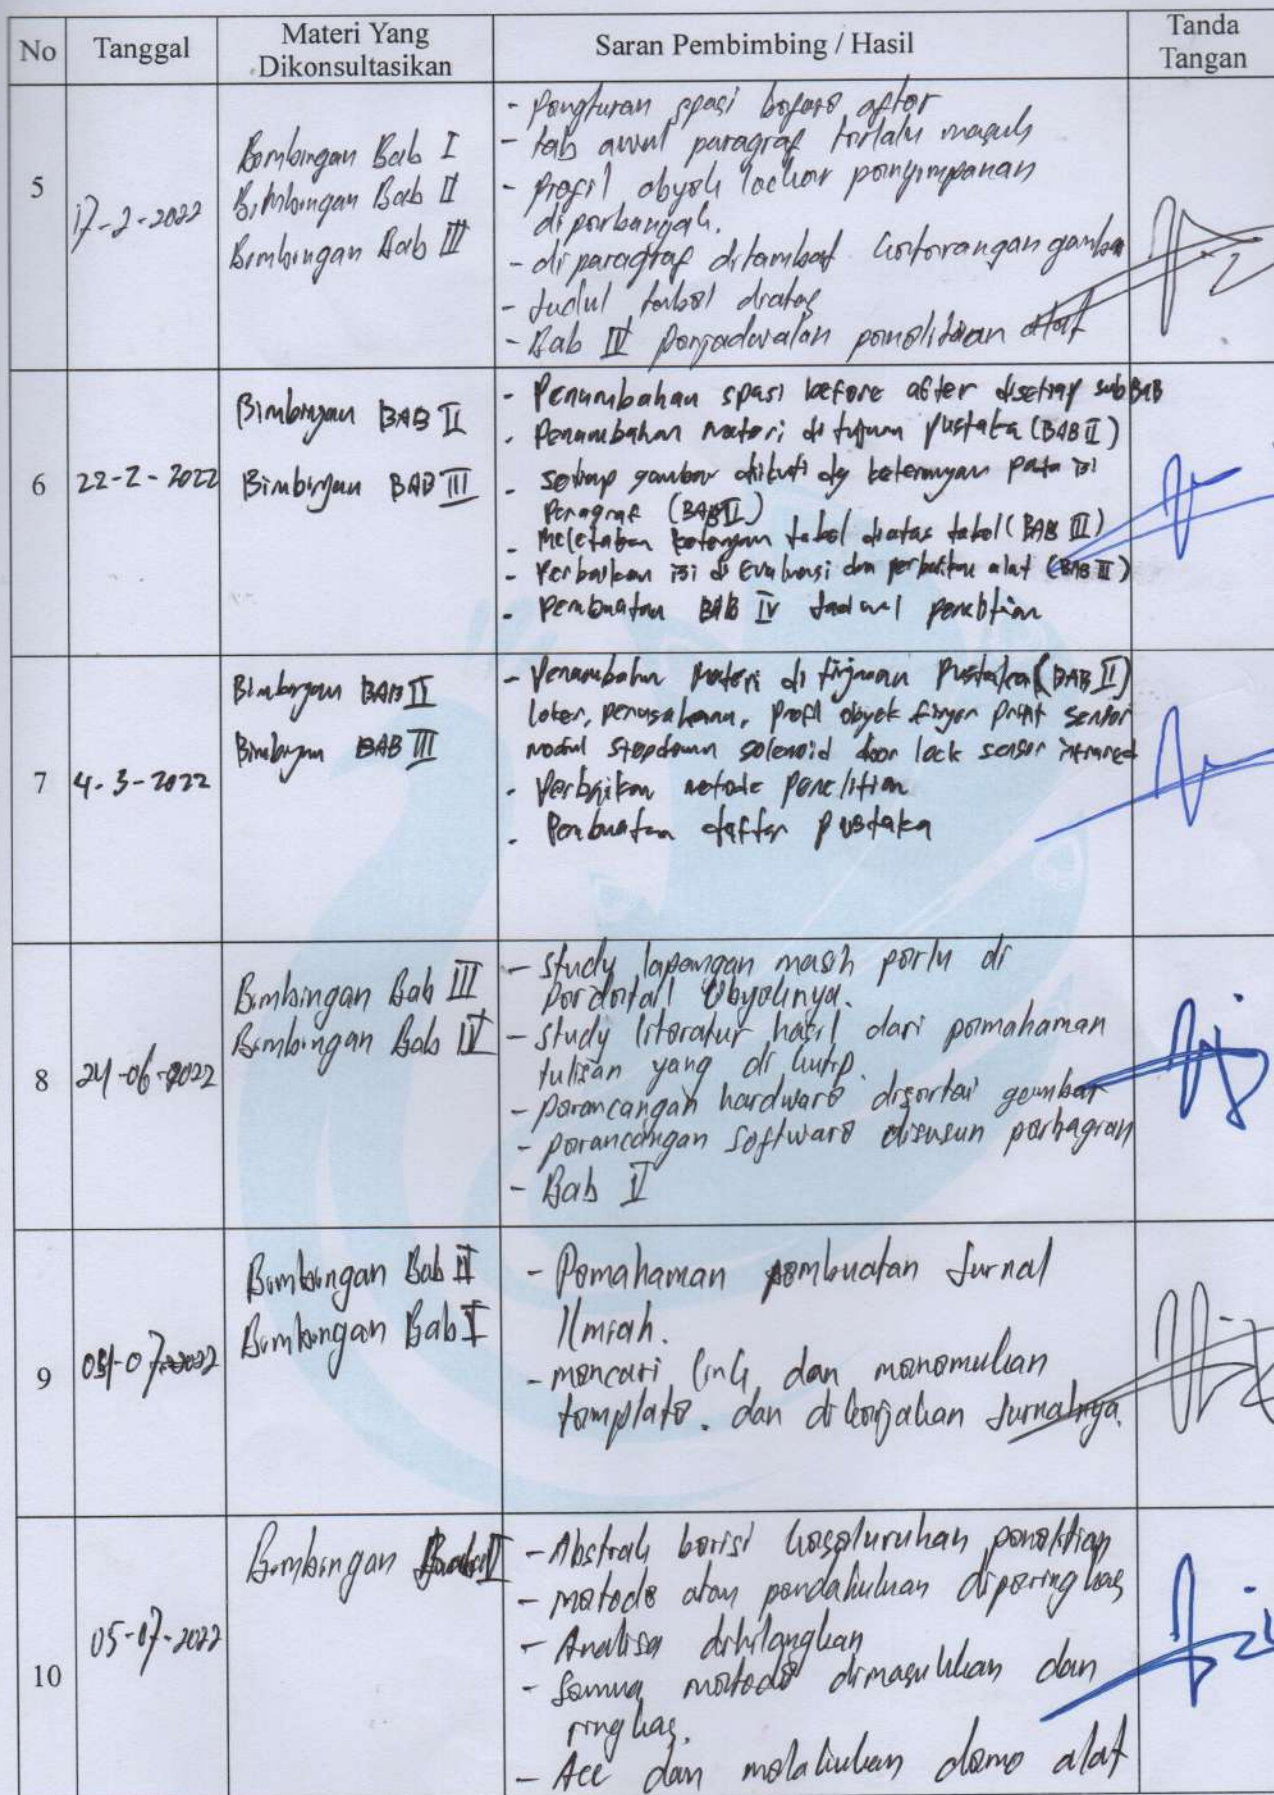 No Tanggal Materi Yang Dikonsultasikan Saran Pembimbing / Hasil Tanda Tangan
5
17-2-2022
Bimbingan Bab I
Bimbingan Bab II
Bimbingan Bab III
- Pengturan spasi before after
- tab awal paragraf terlalu masuk
- Profil obyek locker penyimpanan
diperbanyak.
- di paragraf ditambah keterangan gambar
- Judul tabel diatas
- Bab IV penjadwalan penelitian alat
6
22-2-2022
Bimbingan BAB II
Bimbingan BAB III
- Penambahan spasi before after disetiap sub BAB
- Penambahan materi di tinjuan pustaka (BAB II)
- setiap gambar diikuti dg keterangan pada isi
Paragraf (BAB II)
- Meletakan keterangan tabel diatas tabel (BAB III)
- Perbaikan isi di Evaluasi dan perbaikan alat (BAB III)
- Pembuatan BAB IV Jadwal penelitian
7
4-3-2022
Bimbingan BAB II
Bimbingan BAB III
- Penambahan Materi di tinjauan Pustaka (BAB II)
loker, perusahaan, profil obyek finger print sensor
modul stepdown solenoid door lock sensor infrared
- Perbaikan metode penelitian
- Pembuatan daftar pustaka
8
24-06-2022
Bimbingan Bab III
Bimbingan Bab IV
- Study lapangan masih perlu di
perdetail obyeknya.
- Study literatur hasil dari pemahaman
tulisan yang di kutip.
- perancangan hardware disertai gambar
- perancangan software disusun perbagian
- Bab V
9
-07-2022
Bimbingan Bab
Bimbingan Bab
- Pemahaman pembuatan Jurnal
Ilmiah.
- mencari link dan menemukan
template. dan dikerjakan Jurnalnya.
10
05-07-2022
Bimbingan
- Abstrak berisi keseluruhan penelitian
- metode atau pendahuluan diperingkas
- Analisa dihilangkan
- Semua metode dimasukkan dan
ringkas.
- Acc dan melakukan demo alat